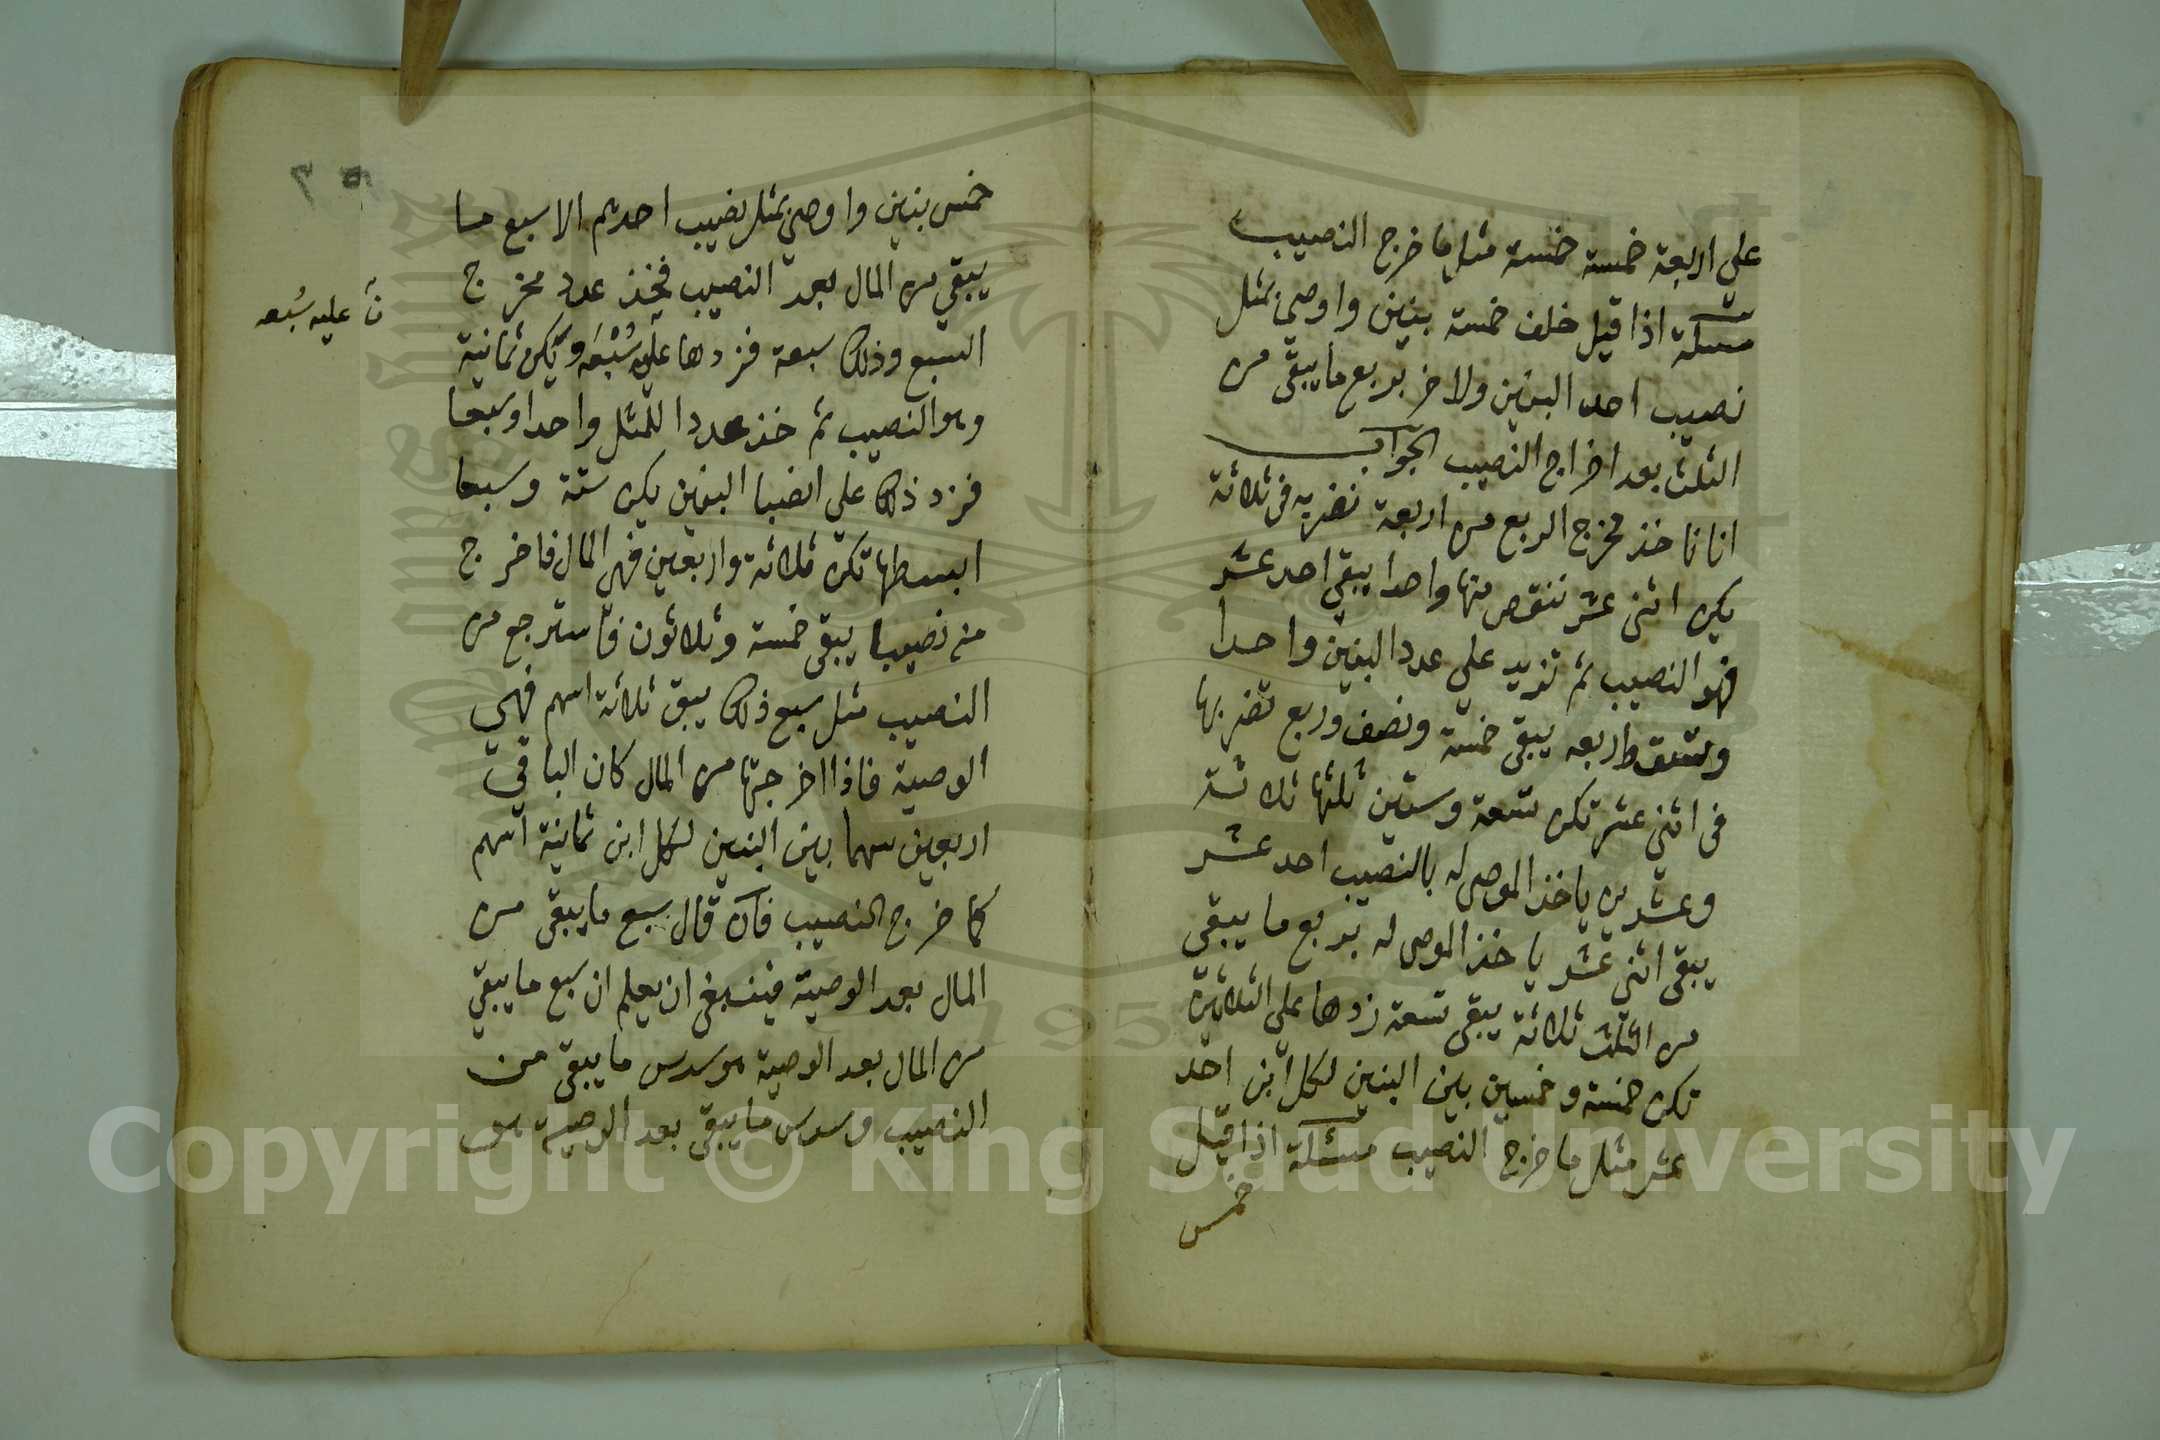 علي اربعة خمسة خمسة مثل ما خرج النصيب
مسئلة اذا قيل خلف خمسة بنين واوصي بمثل
نصيب احد البنين ولاخر بربع ما يبقي من
الثلث بعد اخراج النصيب الجواب
انا ناخذ مخرج الربع من اربعة نضربه في ثلاثة
يكن اثني عشر ننقص منها واحدا يبقي احد عشر
فهو النصيب ثم تزيد علي عدد البنين واحدا
وتسقط اربعه يبقي خمسة ونصف وربع تضربها
في اثني عشر تكن تسعة وستين ثلثها ثلاثة
وعشرين ياخذ الموصي له بالنصيب احد عشر
يبقي اثني عشر ياخذ الموصي له بربع ما يبقي
من الثلث ثلاثة يبقي تسعة زدها علي الثلاثين
تكن خمسة وخمسين بين البنين لكل ابن احد
عشر مثل ما خرج النصيب مسئلة اذا قيل
خمس
خمس بنين واوصي بمثل نصيب احدهم الا سبع ما
يبقي من المال بعد النصيب فخذ عدد مخرج
السبع وذلك سبعة فزدها علي سُبْعَه وتكن ثمانية
وهو النصيب ثم خذ عددا للمثل واحدا وسبعا
فزد ذلك علي انصبا البنين يكن ستة وسبعا
ابسطها تكن ثلاثة واربعين فهي المال فاخرج
منه نصيبا يبقي خمسة وثلاثون فاسترجع من
النصيب مثل سبع ذلك يبق ثلاثة اسهم فهي
الوصية فاذا اخرجتها من المال كان الباقي
اربعين سهما بين البنين لكل ابن ثمانية اسهم
كما خرج النصيب فان قال سبع ما يبقي من
المال بعد الوصية فينبغي ان يعلم ان سبع ما يبقي
من المال بعد الوصية هو سدس ما يبقي من
النصيب وسدس ما يبقي بعد الوصية هو
عليه سُبعه
Copyright © King Saud University
1957